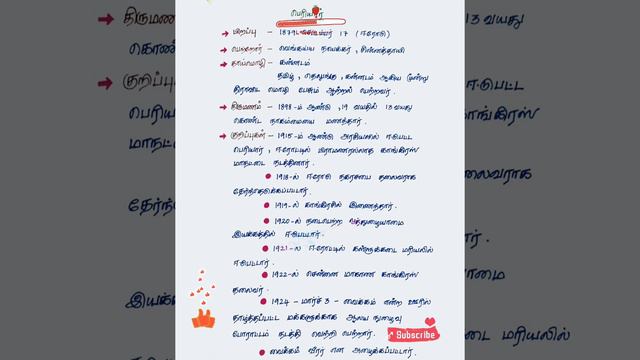 பெரியார்
→ பிறப்பு - 1879 செப்டம்பர் 17 (ஈரோடு)
→ பெற்றோர் - வெங்கட்ட நாயக்கர், சின்னத்தாயி
→ தாய்மொழி - கன்னடம்
தமிழ், தெலுங்கு, கன்னடம் ஆகிய மூன்று
திராவிட மொழி பேசும் ஆற்றல் பெற்றவர்.
→ திருமணம் - 1898-ம் ஆண்டு, 19 வயதில் 13 வயது
கொண்ட நாகம்மையை மணந்தார்.
→ குறிப்புகள் - 1915-ம் ஆண்டு அரசியலில் ஈடுபட்ட
பெரியார், ஈரோட்டில் பிராமணரல்லாத காங்கிரஸ்
மாநாட்டை நடத்தினார்.
● 1918-ல் ஈரோடு நகரசபை தலைவராக
தேர்ந்தெடுக்கப்பட்டார்.
● 1919-ல் காங்கிரசில் இணைந்தார்.
● 1920-ல் நடைபெற்ற ஒத்துழையாமை
இயக்கத்தில் ஈடுபட்டார்.
● 1921-ல் ஈரோட்டில் கள்ளுக்கடை மறியலில்
ஈடுபட்டார்.
● 1922-ல் சென்னை மாகாண காங்கிரஸ்
தலைவர்.
● 1924 - மார்ச் 3 - வைக்கம் என்ற ஊரில்
தாழ்த்தப்பட்ட மக்களுக்காக ஆலய நுழைவு
போராட்டம் நடத்தி வெற்றி பெற்றார்.
● வைக்கம் வீரர் என அழைக்கப்பட்டார்.
Subscribe